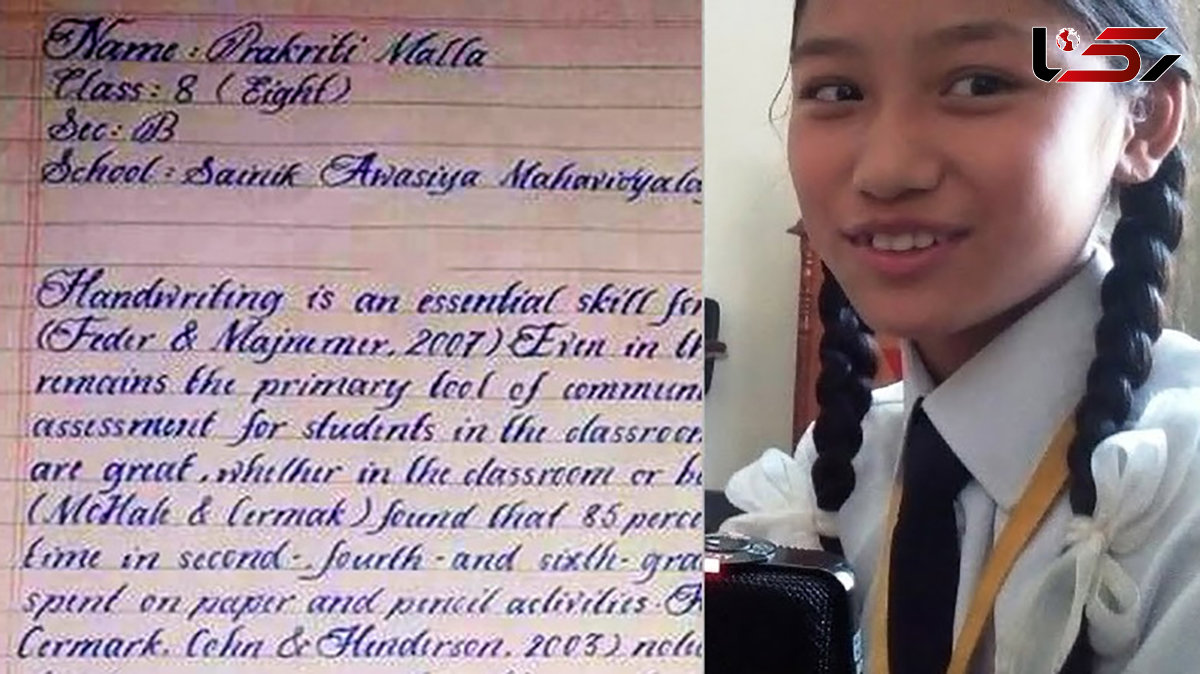 Name : Prakriti Malla
Class : 8 ( Eight )
Sec : B
School : Sainik Awasiya Mahavidyalay
Handwriting is an essential skill for
(Feder & Majnemer, 2007) Even in th
remains the primary tool of commun
assessment for students in the classroom
are great , whether in the classroom or be
(McHale & Cermak ) found that 85 perce
time in second - fourth - and sixth - gra
spent on paper and pencil activities . A
Cermark, Cohn & Henderson, 2003) note